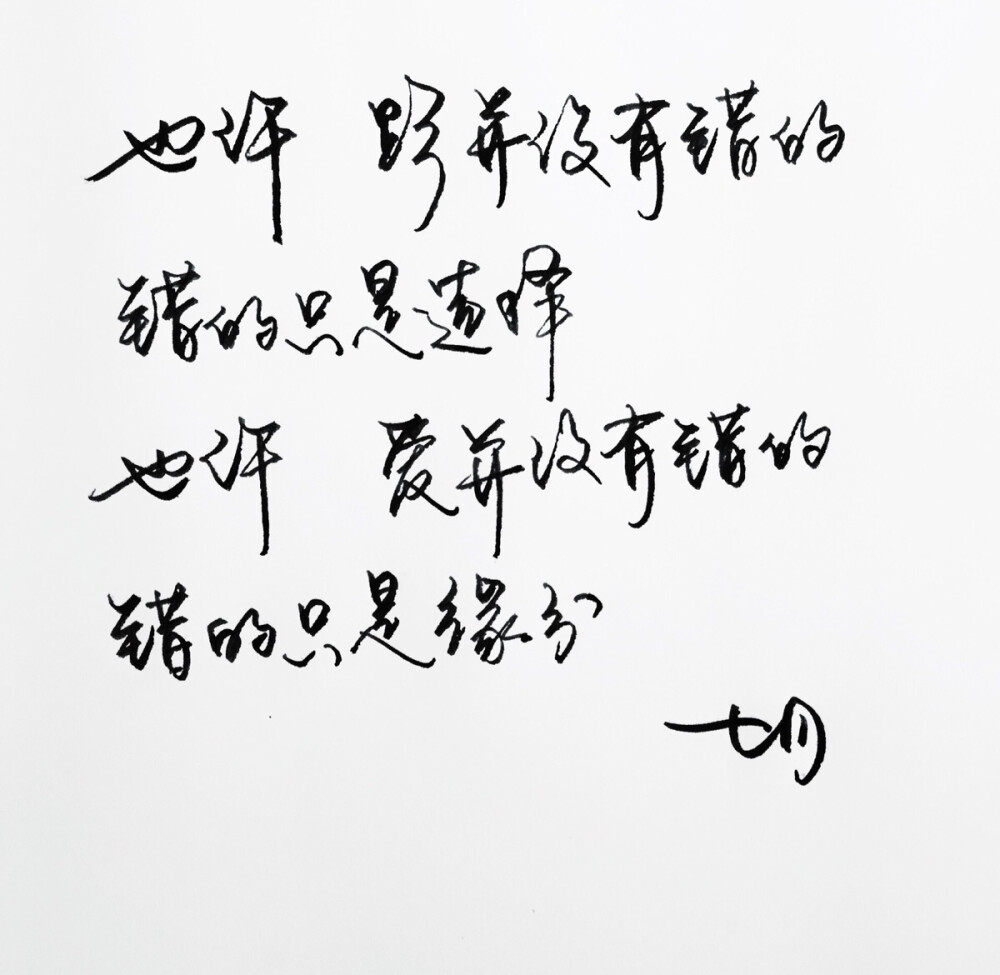 也许 路并没有错的
错的只是选择
也许 爱并没有错的
错的只是缘分
七月